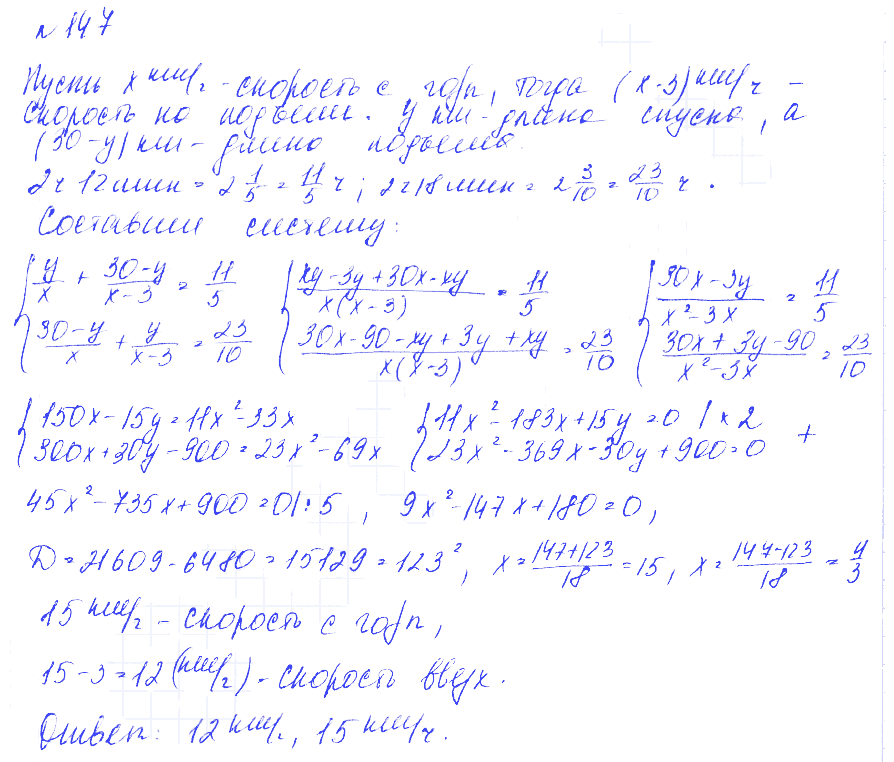 № 147
Пусть x км/ч - скорость с горы, тогда (x-3) км/ч -
скорость на подъеме. y км - длина спуска, а
(30-y) км - длина подъема.
2ч 12мин = 2 1/5 = 11/5 ч; 2ч 18мин = 2 3/10 = 23/10 ч.
Составим систему:
{ y/x + (30-y)/(x-3) = 11/5 { (xy-3y+30x-xy)/(x(x-3)) = 11/5 { (30x-3y)/(x²-3x) = 11/5
{ (30-y)/x + y/(x-3) = 23/10 { (30x-90-xy+3y+xy)/(x(x-3)) = 23/10 { (30x+3y-90)/(x²-3x) = 23/10
{ 150x-15y=11x²-33x { 11x²-183x+15y=0 | × 2
{ 300x+30y-900=23x²-69x { 23x²-369x-30y+900=0 +
45x²-735x+900=0 | : 5, 9x²-147x+180=0,
D=21609-6480=15129=123², x=(147+123)/18=15, x=(147-123)/18=4/3
15 км/ч - скорость с горы,
15-3=12 (км/ч) - скорость вверх.
Ответ: 12 км/ч, 15 км/ч.